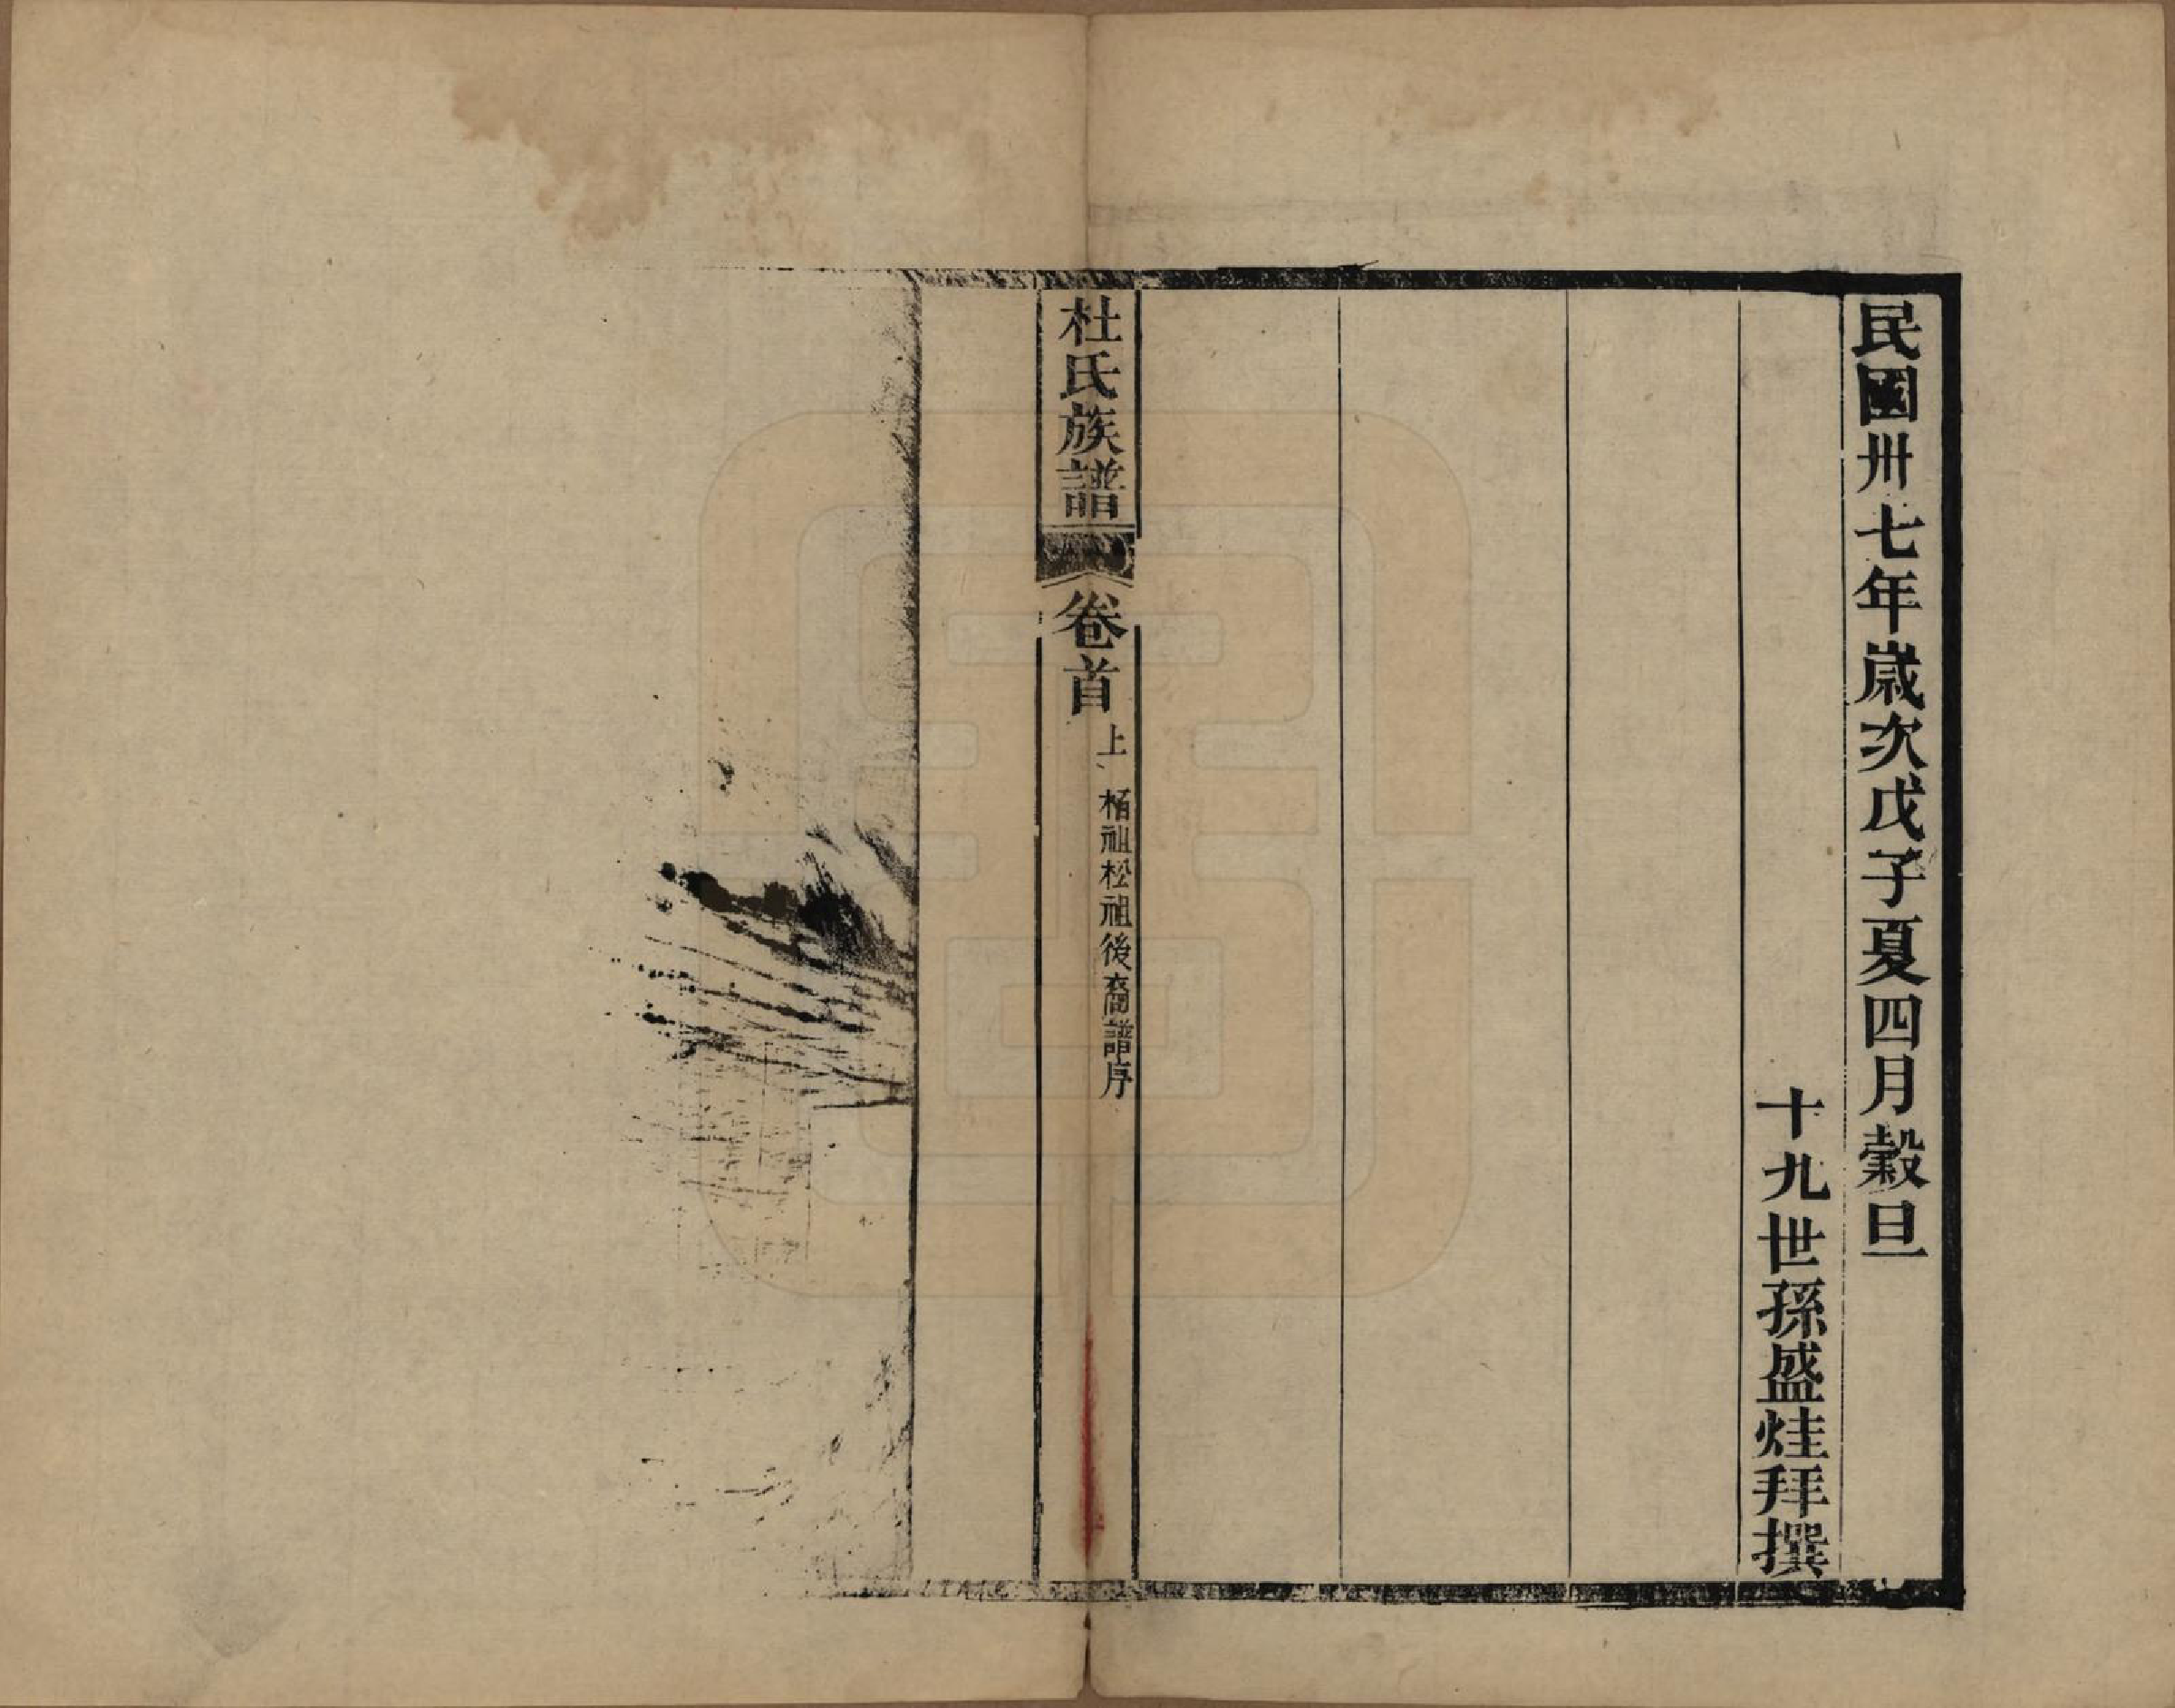 民國卅七年歲次戊子夏四月穀旦
十九世孫盛烓拜撰
杜氏族譜
卷首
上
栢祖松祖後裔譜序